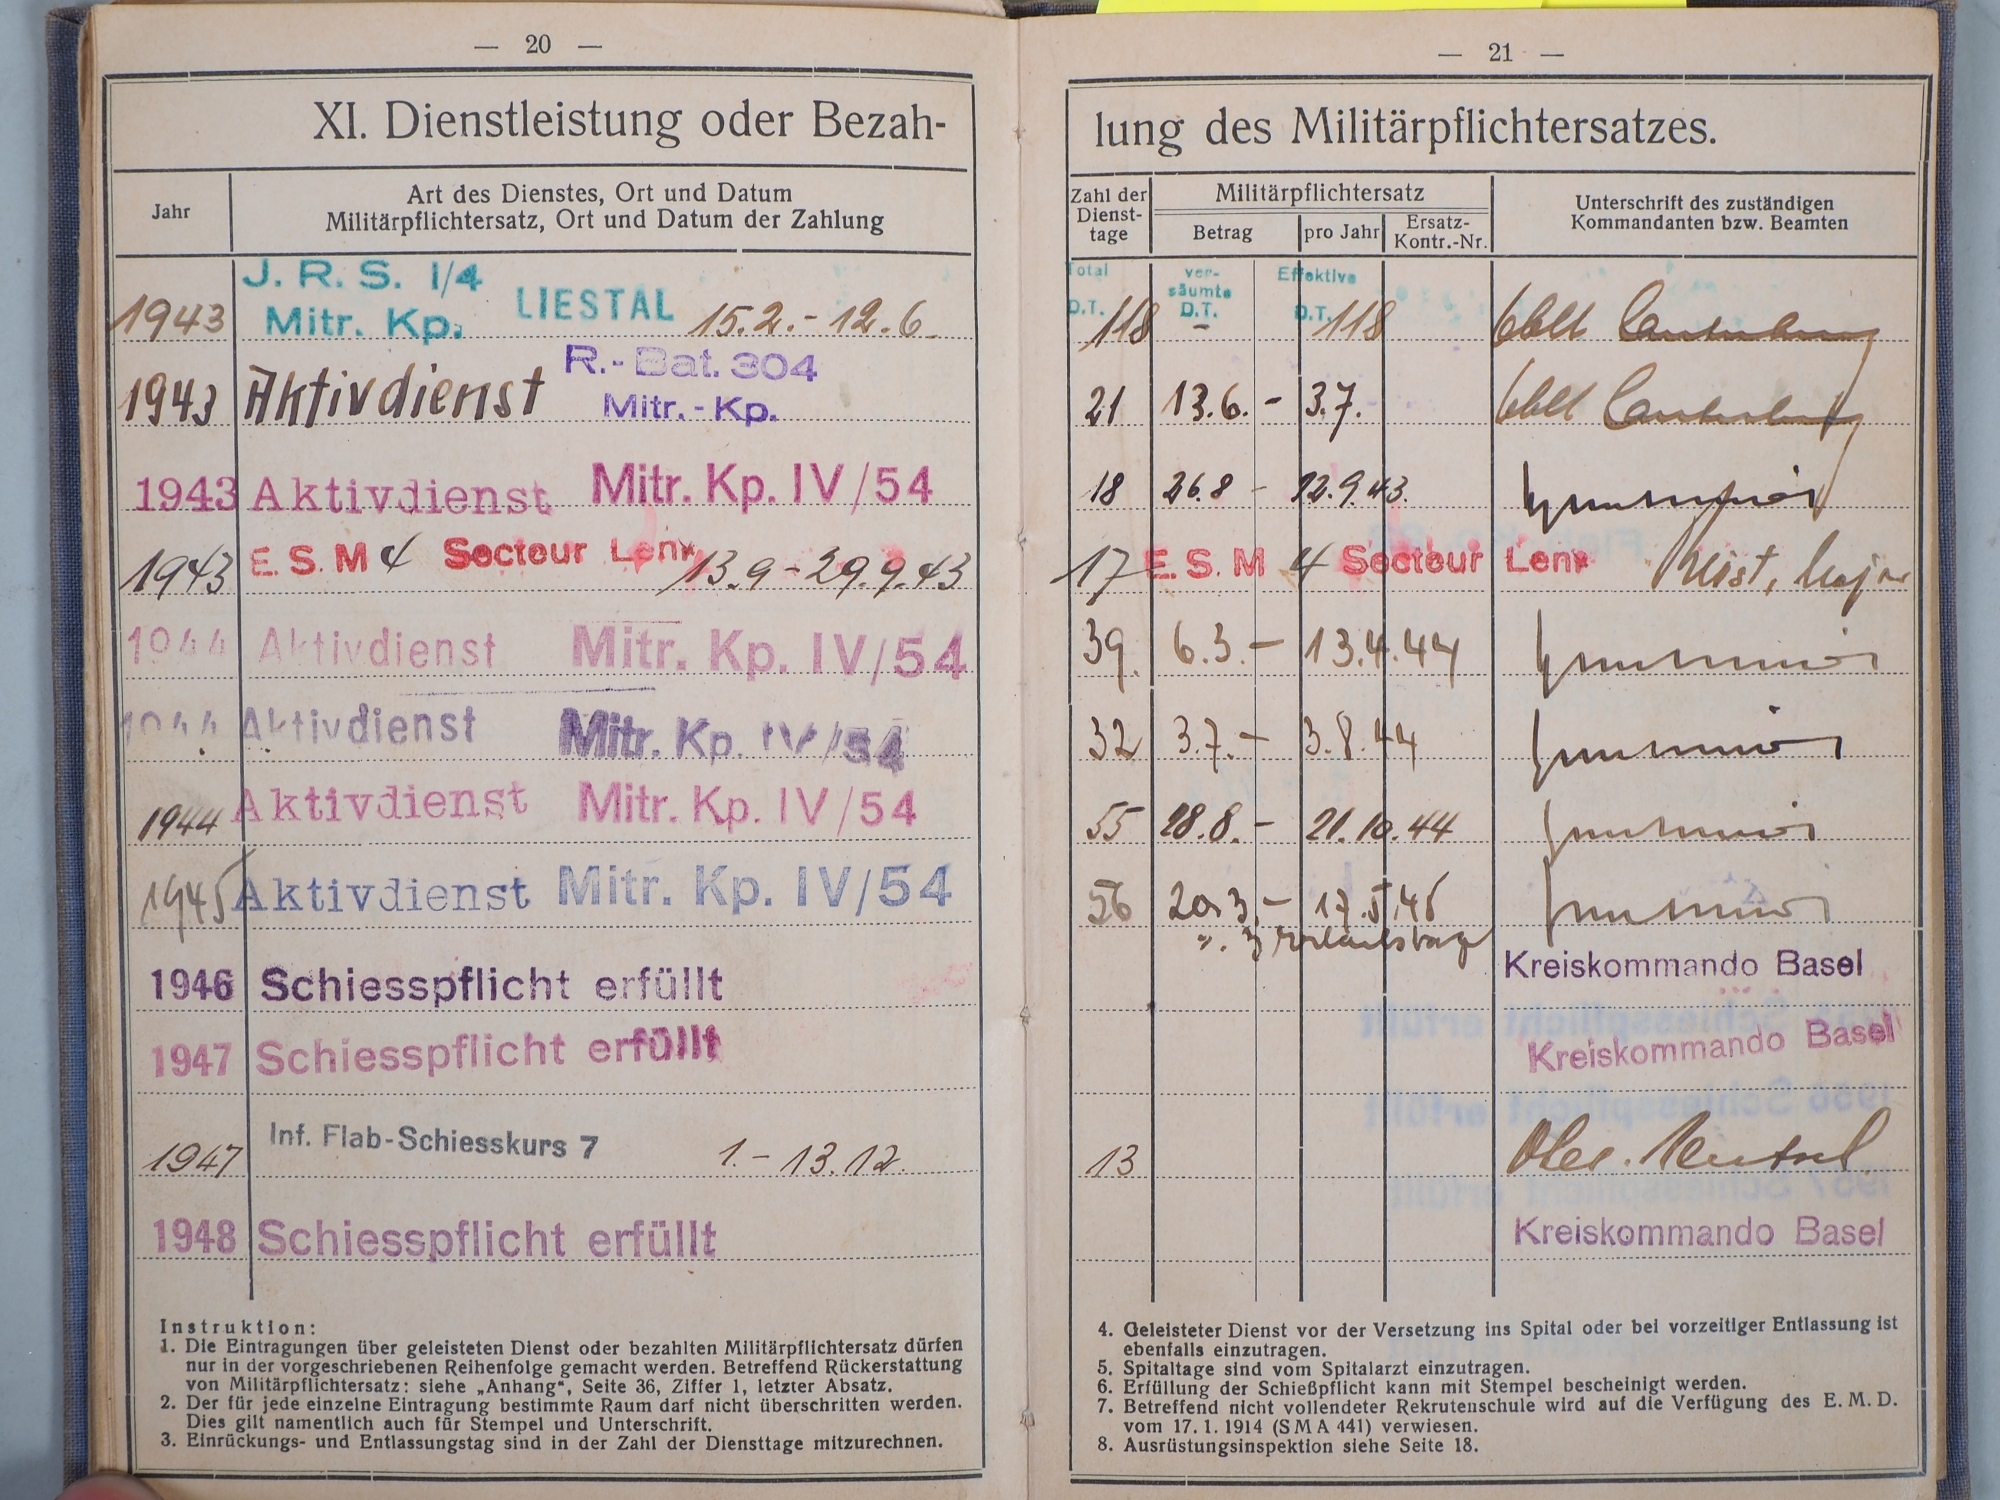 — 20 —
XI. Dienstleistung oder Bezah-
Jahr
Art des Dienstes, Ort und Datum
Militärpflichtersatz, Ort und Datum der Zahlung
J. R. S. I/4
1943 Mitr. Kp. LIESTAL 15.2. - 12.6.
R.-Bat. 304
1943 Aktivdienst Mitr.-Kp.
1943 Aktivdienst Mitr. Kp. IV/54
1943 E. S. M 4 Secteur Lenk 13.9 - 29.9.43
1944 Aktivdienst Mitr. Kp. IV/54
1944 Aktivdienst Mitr. Kp. IV/54
1944 Aktivdienst Mitr. Kp. IV/54
1945 Aktivdienst Mitr. Kp. IV/54
1946 Schiesspflicht erfüllt
1947 Schiesspflicht erfüllt
1947 Inf. Flab-Schiesskurs 7 1. - 13.12.
1948 Schiesspflicht erfüllt
Instruktion:
1. Die Eintragungen über geleisteten Dienst oder bezahlten Militärpflichtersatz dürfen
nur in der vorgeschriebenen Reihenfolge gemacht werden. Betreffend Rückerstattung
von Militärpflichtersatz: siehe „Anhang“, Seite 36, Ziffer 1, letzter Absatz.
2. Der für jede einzelne Eintragung bestimmte Raum darf nicht überschritten werden.
Dies gilt namentlich auch für Stempel und Unterschrift.
3. Einrückungs- und Entlassungstag sind in der Zahl der Diensttage mitzurechnen.
— 21 —
lung des Militärpflichtersatzes.
Zahl der
Dienst-
tage
Militärpflichtersatz
Betrag
pro Jahr
Ersatz-
Kontr.-Nr.
Unterschrift des zuständigen
Kommandanten bzw. Beamten
Total
D.T. 118
ver-
säumte
D.T. -
Effektive
D.T. 118
21 13.6. - 3.7.
18 26.8 - 12.9.43.
17 E. S. M 4 Secteur Lenk Major
39. 6.3. - 13.4.44
32 3.7. - 3.8.44
55 28.8. - 21.10.44
56 20.3. - 17.5.45
3 Urlaubstage
Kreiskommando Basel
Kreiskommando Basel
13
Kreiskommando Basel
4. Geleisteter Dienst vor der Versetzung ins Spital oder bei vorzeitiger Entlassung ist
ebenfalls einzutragen.
5. Spitaltage sind vom Spitalarzt einzutragen.
6. Erfüllung der Schießpflicht kann mit Stempel bescheinigt werden.
7. Betreffend nicht vollendeter Rekrutenschule wird auf die Verfügung des E. M. D.
vom 17. 1. 1914 (S M A 441) verwiesen.
8. Ausrüstungsinspektion siehe Seite 18.